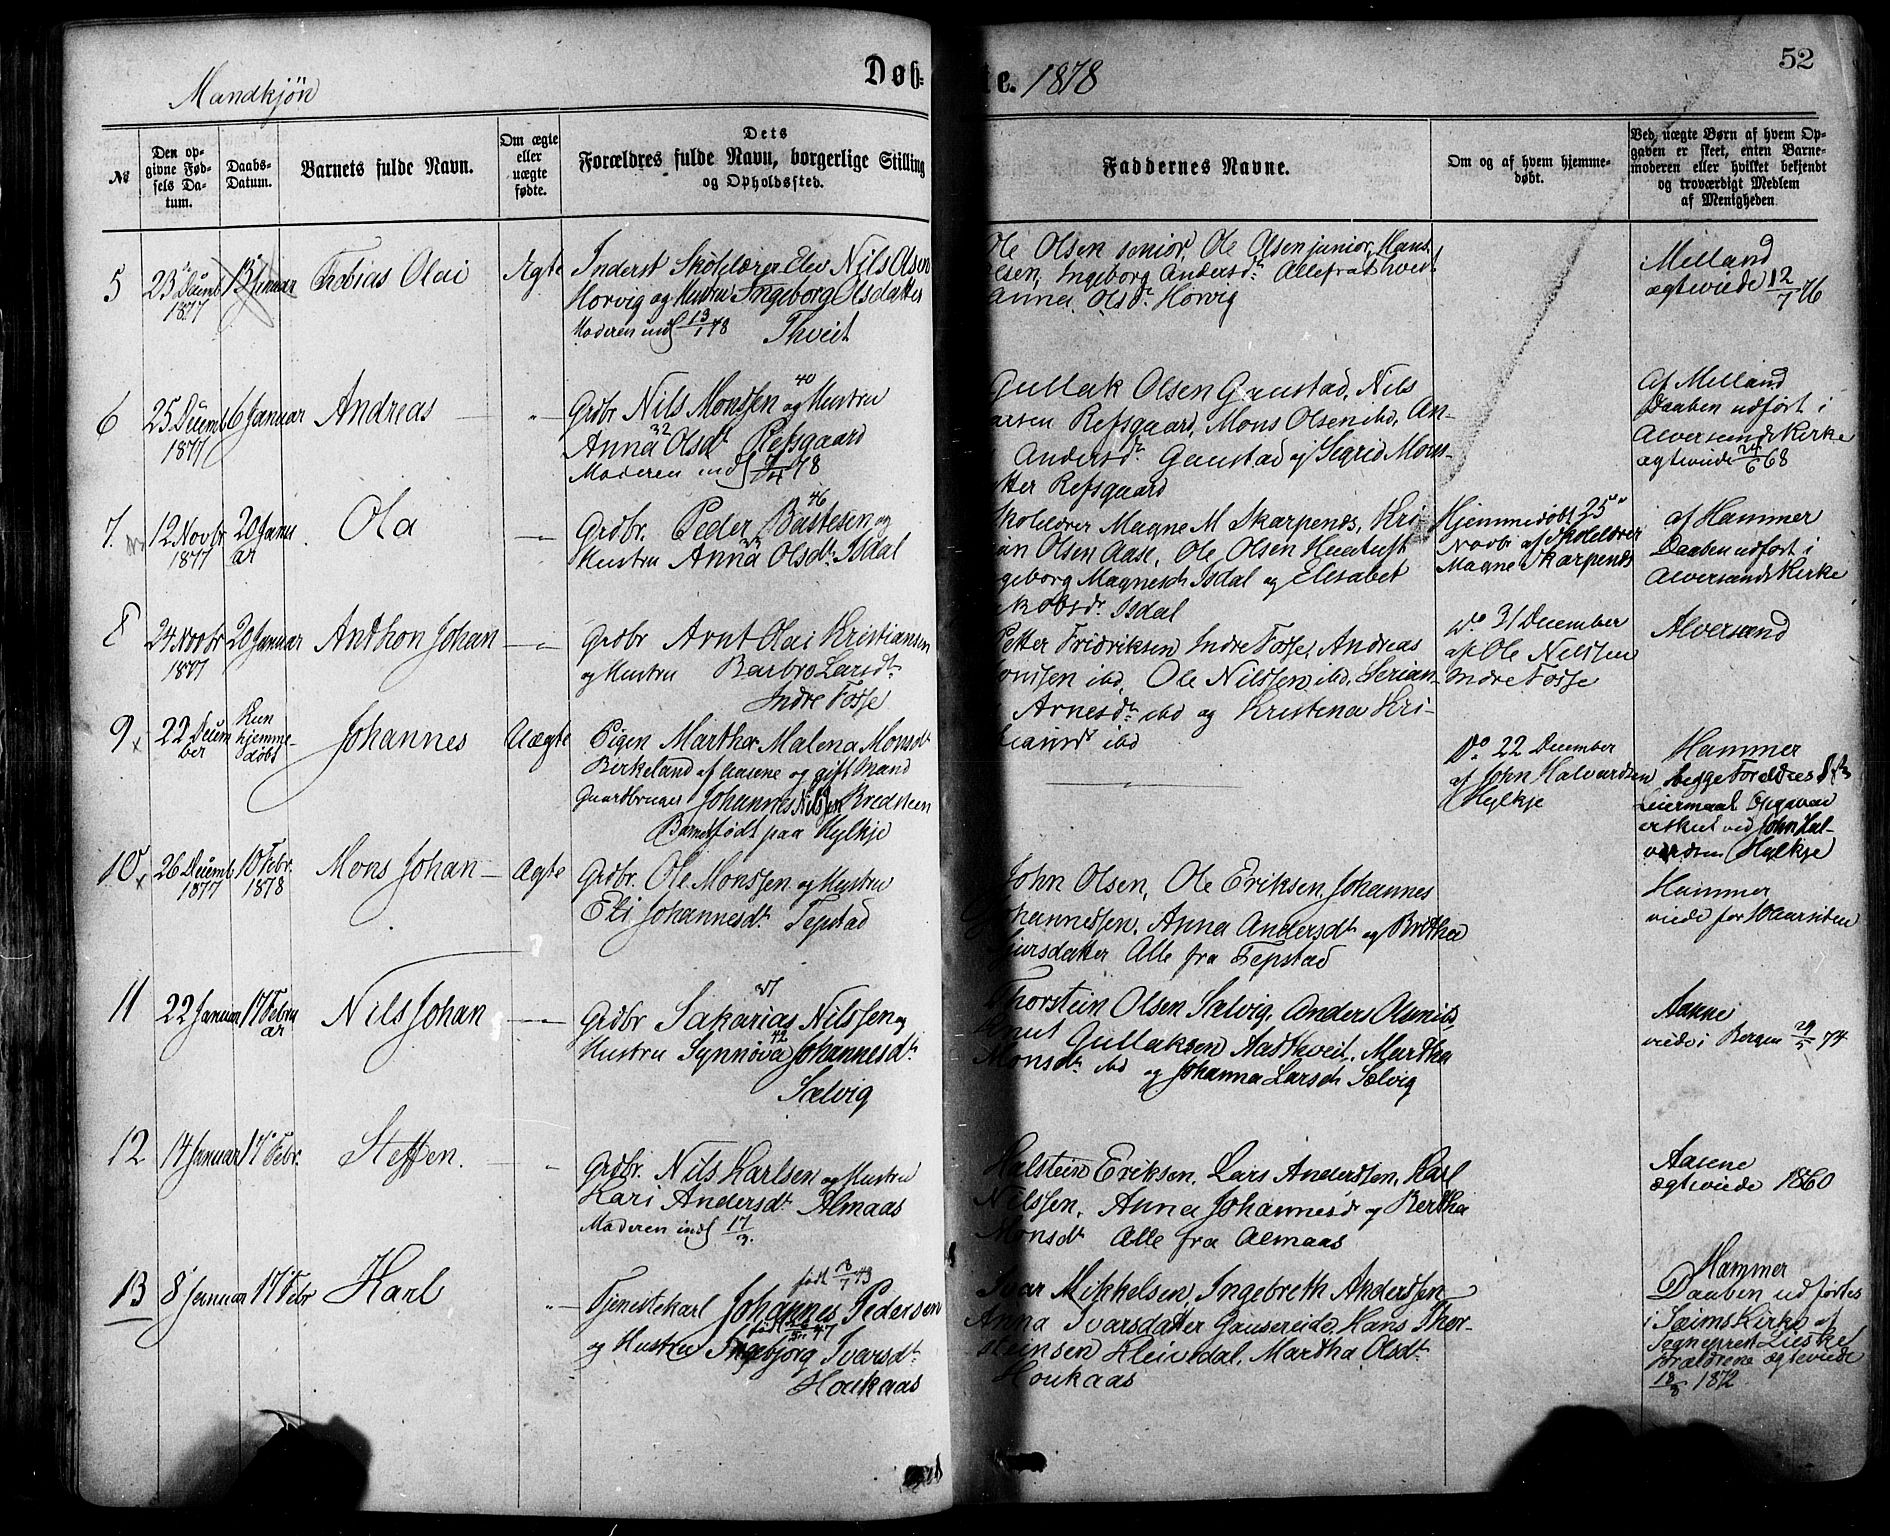 Mandkjön
Døb-
te. 1878
52
№
Den op-
givne Fød-
sels Da-
tum.
Daabs-
Datum.
Barnets fulde Navn.
Om ægte
eller
uægte
fødte.
Dets
Forældres fulde Navn, borgerlige Stilling
og Opholdssted.
Faddernes Navne.
Om og af hvem hjemme-
døbt.
Ved uægte Børn af hvem Op-
gaven er skeet, enten Barne-
moderen eller hvilket bekjendt
og troværdigt Medlem
af Menigheden
5
23 Decemb
1877
13 Januar
Tobias Olai
Ægte
Inderst Skolelærer Elev Nils Olsen
Horvig og Hustru Ingeborg Olsdatter
Moderen indl 13/1 78 Thveit
Ole Olsen senior, Ole Olsen junior, Hans
Olsen, Ingeborg Andersdr Alle fra Thveit
Anna Olsdr Horvig
Melland
ægteviede 12/7 76
6
25 Decemb
1877
6 Januar
Andreas
"
Grdbr. Nils Monsen 40 og Hustru
Anna 32 Olsdt Refsgaard
Moderen indl 78
Gullak Olsen Gaustad, Nils
Larsen Refsgaard, Mons Olsen ibd, An-
Andersdr Gaustad og Segrid Mons-
datter Refsgaard
Af Melland
Daaben udført i
Alversunds Kirke
ægteviede 24/6 68
7.
12 Novbr
1877
20 Janu
ar
Ola
"
Grdbr. Peder Bastesen 46 og
Hustru Anna 33 Olsdt. Isdal
Skolelærer Magne M Skarpenes, Kri
stian Olsen Aase, Ole Olsen Hentuft
Ingeborg Magnesdr Isdal og Elisabet
Jakobsdr. Isdal
Hjemmedøbt 25
Novbr af Skolelærer
Magne Skarpenes
af Hammer
Daaben udført i
Alversunds Kirke
8
24 Novbr
1877
20 Januar
Anthon Johan
"
Grdbr Arnt Olai Kristiansen
og Hustru Barbro Larsdt.
Indre Fosse
Petter Fridriksen Indre Fosse, Andreas
ibd, Ole Nilssen ibd, Serian-
Arnesdt ibd og Kristena Kri-
stiansdt ibd
Do 31 December
af Ole Nilssen
Indre Fosse
Alversund
9
x
22 Decem
ber
Kun
hjemme-
døbt
Johannes
Uægte
Pigen Martha Malena Monsdt
Birkeland af Aasene og gift Mand
Gaardbruger Johannes Nilsen Bredsteen
Barnet født paa Hylkje
Do 22 December
af John Halvardsen
Hylkje
Hammer
begge Forældres
Leiermaal Opgaven
er skeet ved John Hal-
vardsen Hylkje
10
x
26 Decemb
1877
10 Febr.
1878
Mons Johan
Ægte
Grdbr. Ole Monssen og Hustru
Eli Johannesdt. Tepstad
John Olsen, Ole Eriksen, Johannes
Johannessen, Anna Andersdt og Britha
Sjursdatter Alle fra Tepstad
Hammer
viede for 10 Aar siden
11
22 Januar
17 Febru
ar
Nils Johan
"
Grdbr Sakarias 37 Nilssen og
Hustru Synnøva 42 Johannesdt.
Sælvig
Thorstein Olsen Sælvig, Anders
Knut Gullaksen Aadthveit, Martha
Monsdt ibd og Johanna Larsdr Sælvig
Aasene
viede i Bergen 29/5 74
12
14 Januar
17 Febr.
Steffen.
"
Grdbr. Nils Karlsen og Hustru
Kari Andersdt. Almaas
Moderen indl 17/3.
Halstein Eriksen, Lars Anderssen, Karl
Nilssen, Anna Johannesdr og Bertha
Monsdt Alle fra Almaas
Aasene
ægteviede 1860
13
8 Januar
17 Febr
Karl
"
Tjenestekarl Johannes Pedersen
født 3/7 43
og Hustru Ingebjorg Ivarsdt.
Houkaas
Ivar Mikkelsen, Ingebreth Anderssen
Anna Ivarsdatter Gausereide, Hans Thor-
steinsen Kleivdal, Martha Olsdt.
Houkaas
Hammer
Daaben udførtes
i Seims Kirke af
Sogneprest
Forældrene ægteviede
18/8 1872